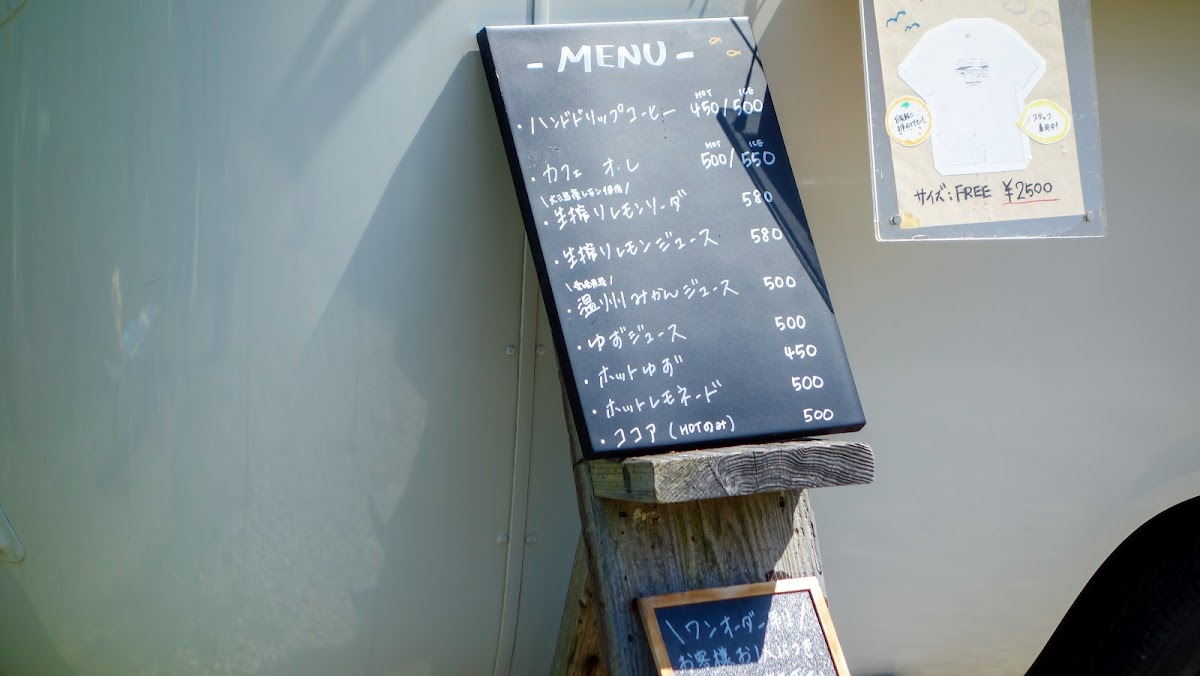 - MENU -
HOT ICE
・ハンドドリップコーヒー 450/500
HOT ICE
・カフェオレ 500/550
\大三島産レモン使用/
・生搾りレモンソーダ 580
・生搾りレモンジュース 580
・温州みかんジュース 500
・ゆずジュース 500
・ホットゆず 450
・ホットレモネード 500
・ココア(HOTのみ) 500
\ワンオーダー
お客様お
スタッフ
着用中!
サイズ:FREE ¥2500